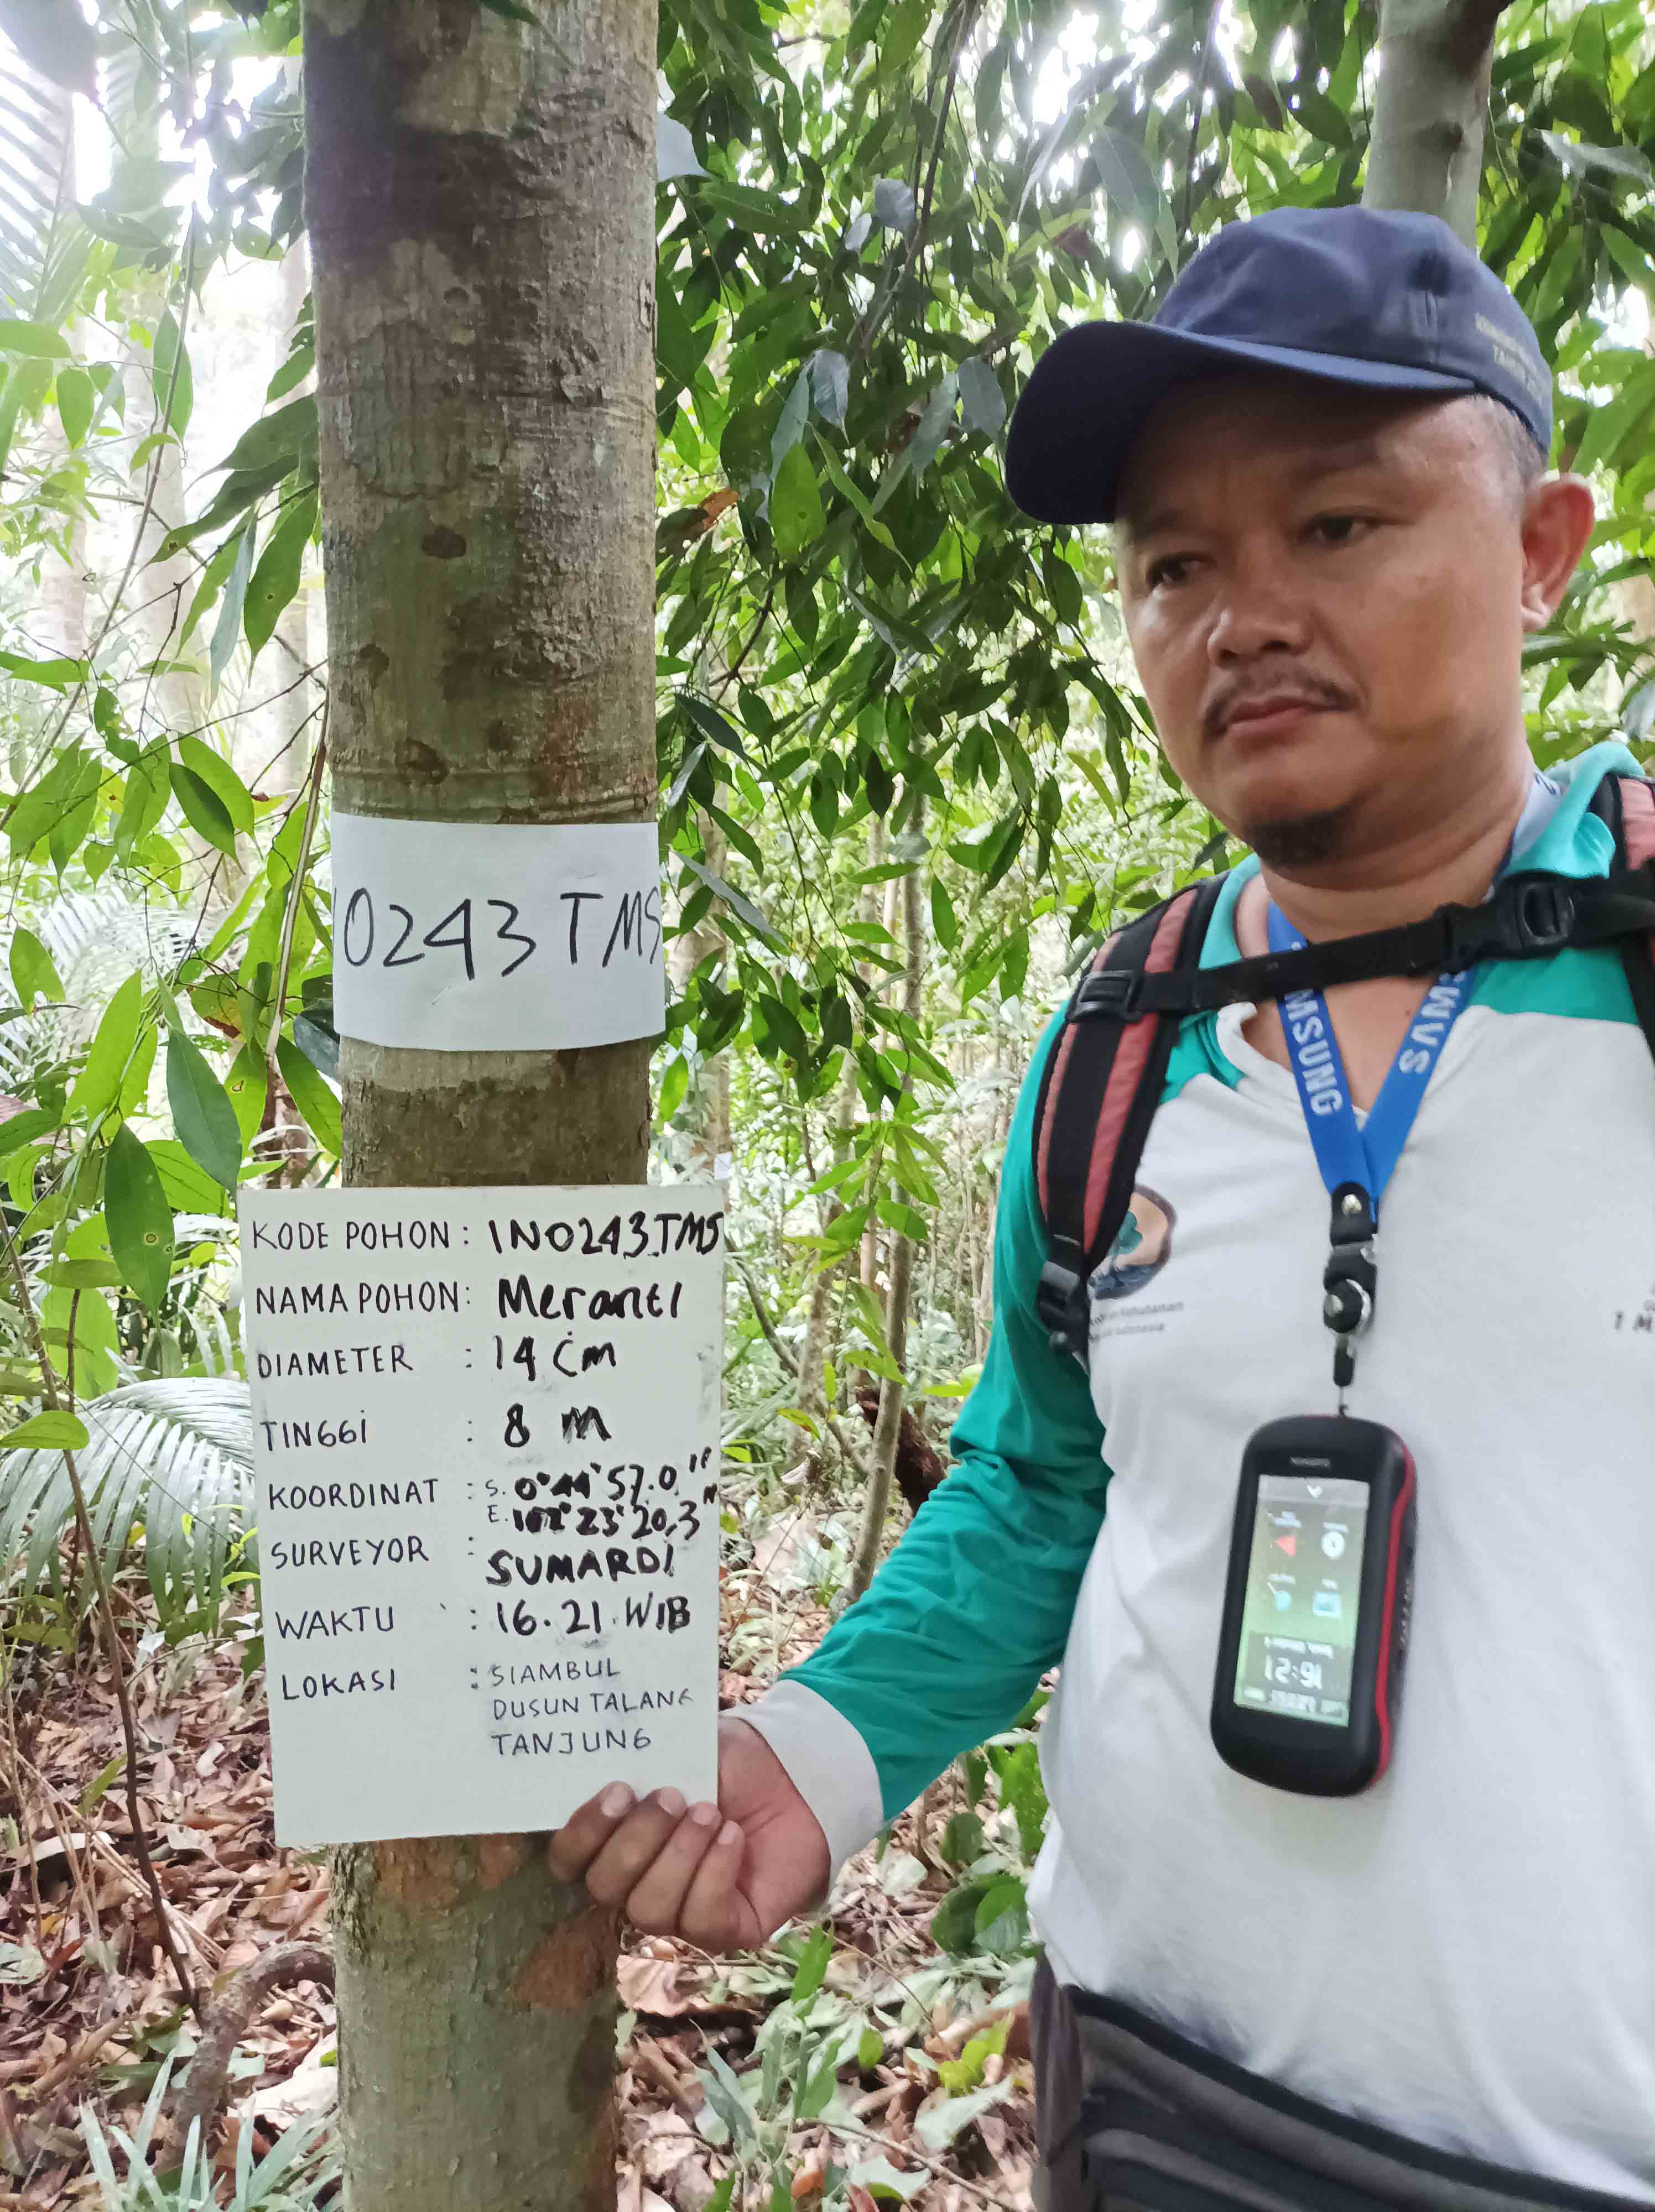 0243 TMS
KODE POHON : IN0243.TMS
NAMA POHON : Meranti
DIAMETER : 14 cm
TINGGI : 8 M
KOORDINAT : S. 0°44'57.0"
E. 102°23'20,3"
SURVEYOR : SUMARDI
WAKTU : 16.21.WIB
LOKASI : SIAMBUL
DUSUN TALANG
TANJUNG
SAMSUNG
16:21
1 M